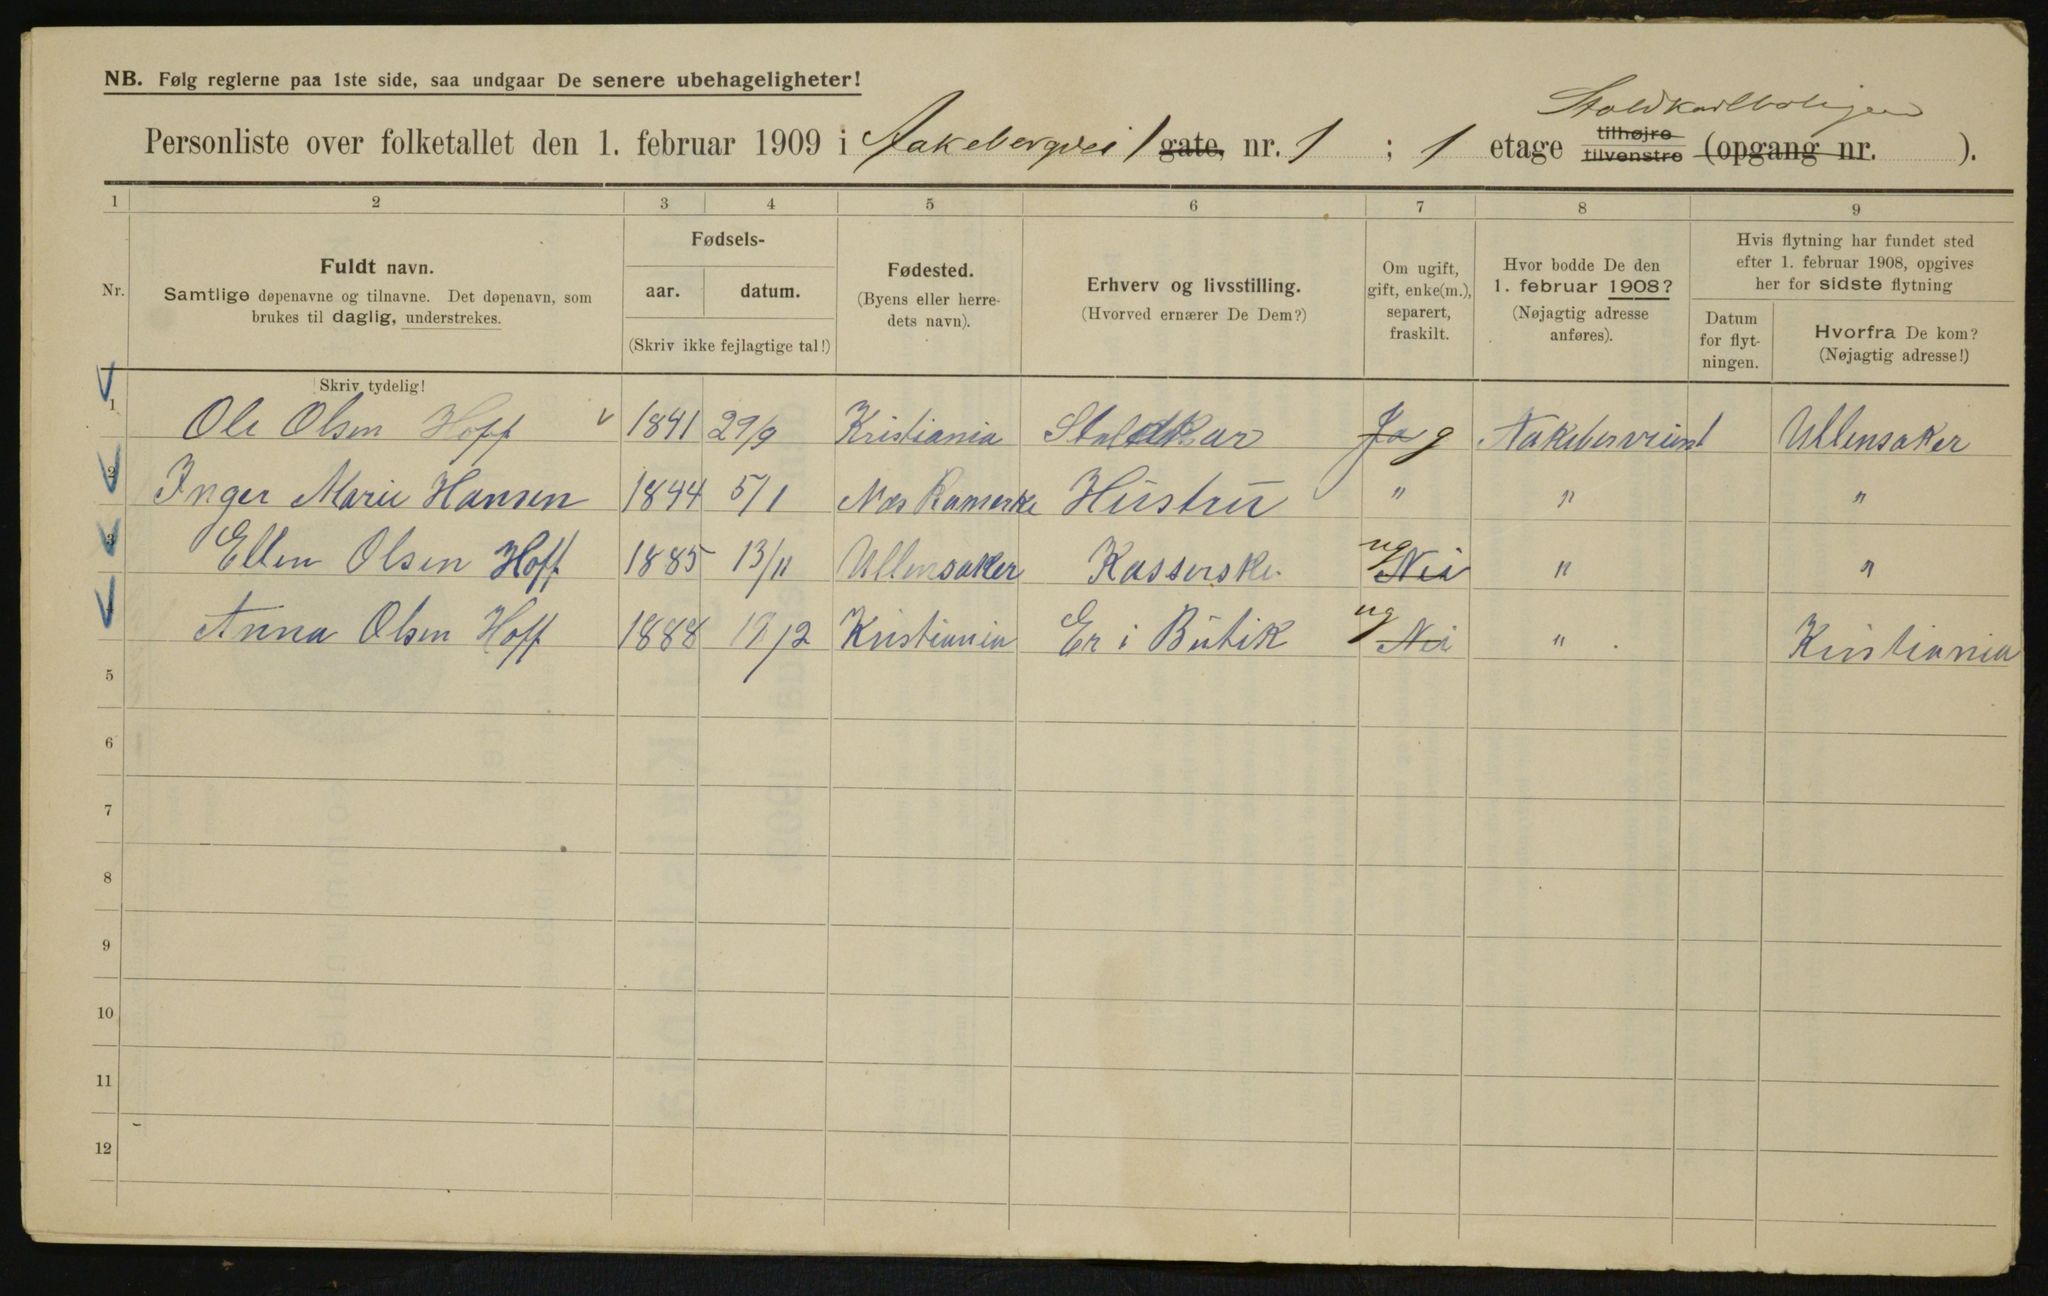 NB. Følg reglerne paa 1ste side, saa undgaar De senere ubehageligheter!
Personliste over folketallet den 1. februar 1909 i Aakebergvei 1 gate, nr. 1 ; 1 etage tilhøjre tilvenstre (opgang nr. ).
1 2 3 4 5 6 7 8 9
Nr.
Fuldt navn.
Samtlige døpenavne og tilnavne. Det døpenavn, som
brukes til daglig, understrekes.
Fødsels-
aar. datum.
(Skriv ikke fejlagtige tal!)
Fødested.
(Byens eller herre-
dets navn).
Erhverv og livsstilling.
(Hvorved ernærer De Dem?)
Om ugift,
gift, enke(m.),
separert,
fraskilt.
Hvor bodde De den
1. februar 1908?
(Nøjagtig adresse
anføres).
Hvis flytning har fundet sted
efter 1. februar 1908, opgives
her for sidste flytning
Datum
for flyt-
ningen.
Hvorfra De kom?
(Nøjagtig adresse!)
Skriv tydelig!
1 Ole Olsen Hoff 1841 29/9 Kristiania Staldkar Ja g Ullensaker
2 Inger Marie Hansen 1844 5/1 Nes Romerke Hustru " " "
3 Ellen Olsen Hoff 1885 13/11 Ullensaker Kasserske ug Nei " "
4 Anna Olsen Hoff 1888 /2 Kristiania Er i Butik ug Nei " Kristiania
5
6
7
8
9
10
11
12